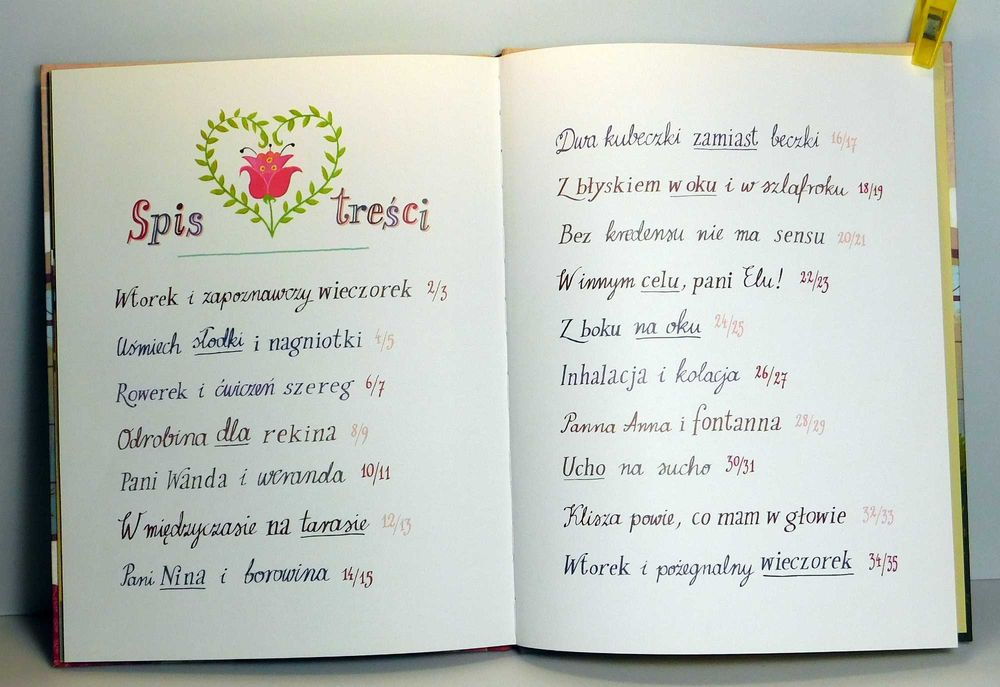 Spis treści
Wtorek i zapoznawczy wieczorek 2/3
Uśmiech słodki i nagniotki 4/5
Rowerek i ćwiczeń szereg 6/7
Odrobina dla rekina 8/9
Pani Wanda i weranda 10/11
W międzyczasie na tarasie 12/13
Pani Nina i borowina 14/15
Dwa kubeczki zamiast beczki 16/17
Z błyskiem w oku i w szlafroku 18/19
Bez kredensu nie ma sensu 20/21
W innym celu, pani Elu! 22/23
Z boku na oku 24/25
Inhalacja i kolacja 26/27
Panna Anna i fontanna 28/29
Ucho na sucho 30/31
Klisza powie, co mam w głowie 32/33
Wtorek i pożegnalny wieczorek 34/35